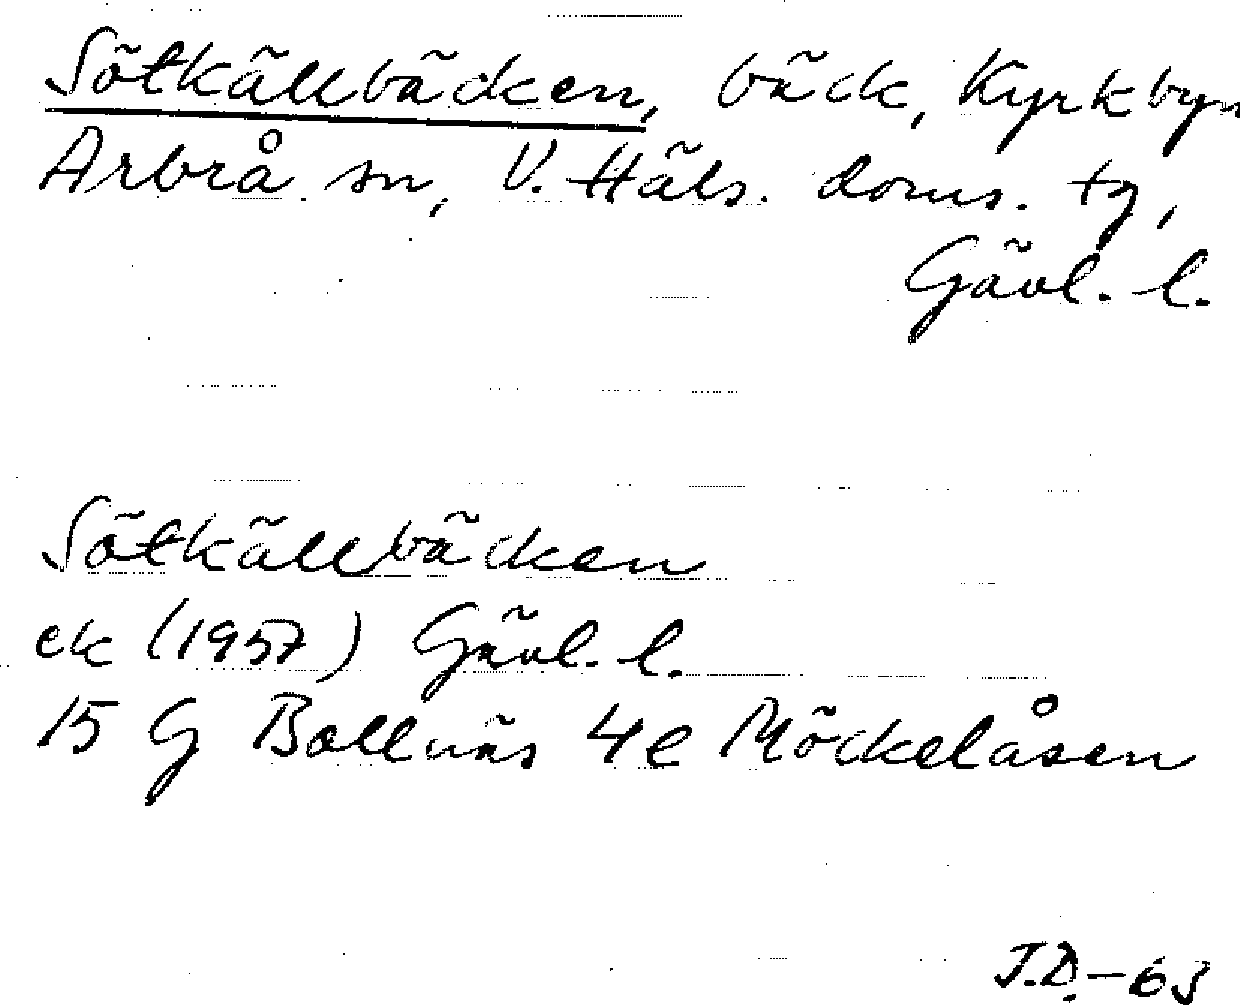 Sötkällbäcken, bäck, Kyrkbyn
Arbrå sn, V. Häls. doms. tg,
Gävl. l.
Sötkällbäcken
ek (1957) Gävl. l.
15 G Bollnäs 4e Möckelåsen
J.D.-63